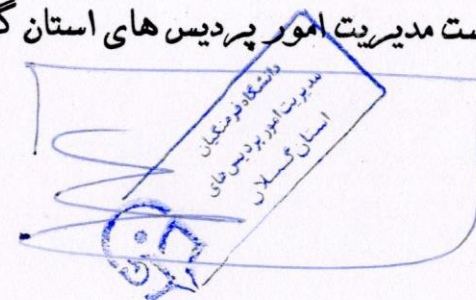 ست مدیریت امور پردیس های استان گ
دانشگاه فرهنگیان
مدیریت امور پردیس های
استان گیلان